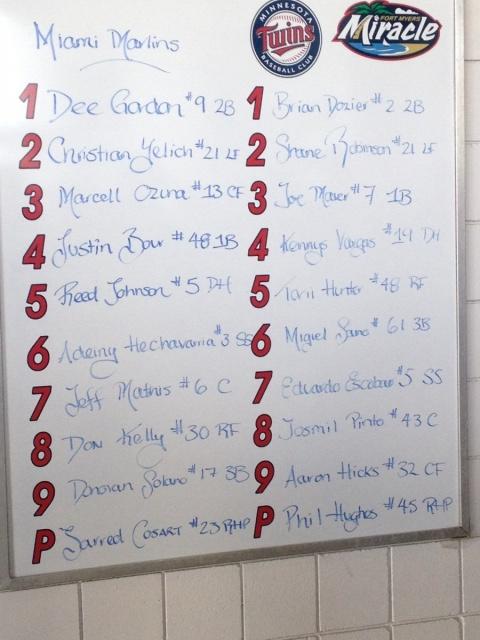 Miami Marlins
MINNESOTA Twins BASEBALL CLUB
FORT MYERS Miracle
1 Dee Gordon #9 2B
2 Christian Yelich #21 LF
3 Marcell Ozuna #13 CF
4 Justin Bour #48 1B
5 Reed Johnson #5 DH
6 Adeiny Hechavarria #3 SS
7 Jeff Mathis #6 C
8 Don Kelly #30 RF
9 Donovan Solano #17 3B
P Jarred Cosart #23 RHP
1 Brian Dozier #2 2B
2 Shane Robinson #21 LF
3 Joe Mauer #7 1B
4 Kennys Vargas #19 DH
5 Torii Hunter #48 RF
6 Miguel Sano #61 3B
7 Eduardo Escobar #5 SS
8 Josmil Pinto #43 C
9 Aaron Hicks #32 CF
P Phil Hughes #45 RHP